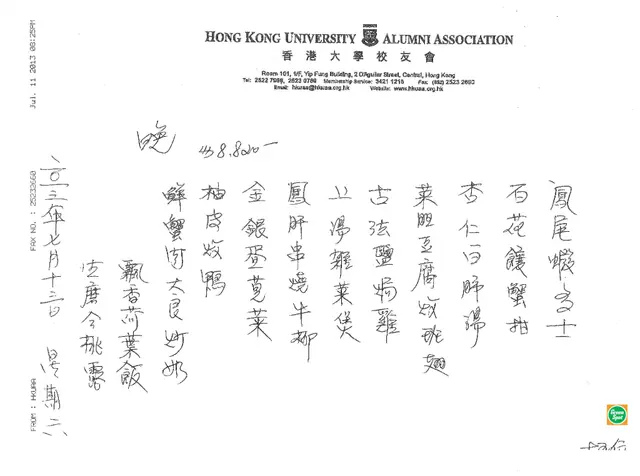 HONG KONG UNIVERSITY ALUMNI ASSOCIATION
香港大學校友會
Room 101, 1/F, Yip Fung Building, 2 D'Aguilar Street, Central, Hong Kong
Tel: 2522 7968, 2522 0786 Membership Service: 3421 1218 Fax: (852) 2523 2660
Email: hkuaa@hkuaa.org.hk Website: www.hkuaa.org.hk
Jul. 11 2013 08:25PM
FAX NO. : 25232660
FROM : HKUAA
晚
鳳尾蝦多士
百花釀蟹拑
杏仁白肺湯
菜胆豆腐炆班翅
古法鹽焗雞
上湯雜菜煲
鳳肝串燒牛柳
金銀蛋莧菜
柚皮炆鴨
鮮蟹肉大良炒奶
飄香荷葉飯
生磨合桃露
二〇一三年七月十三日 星期六
Green Spot